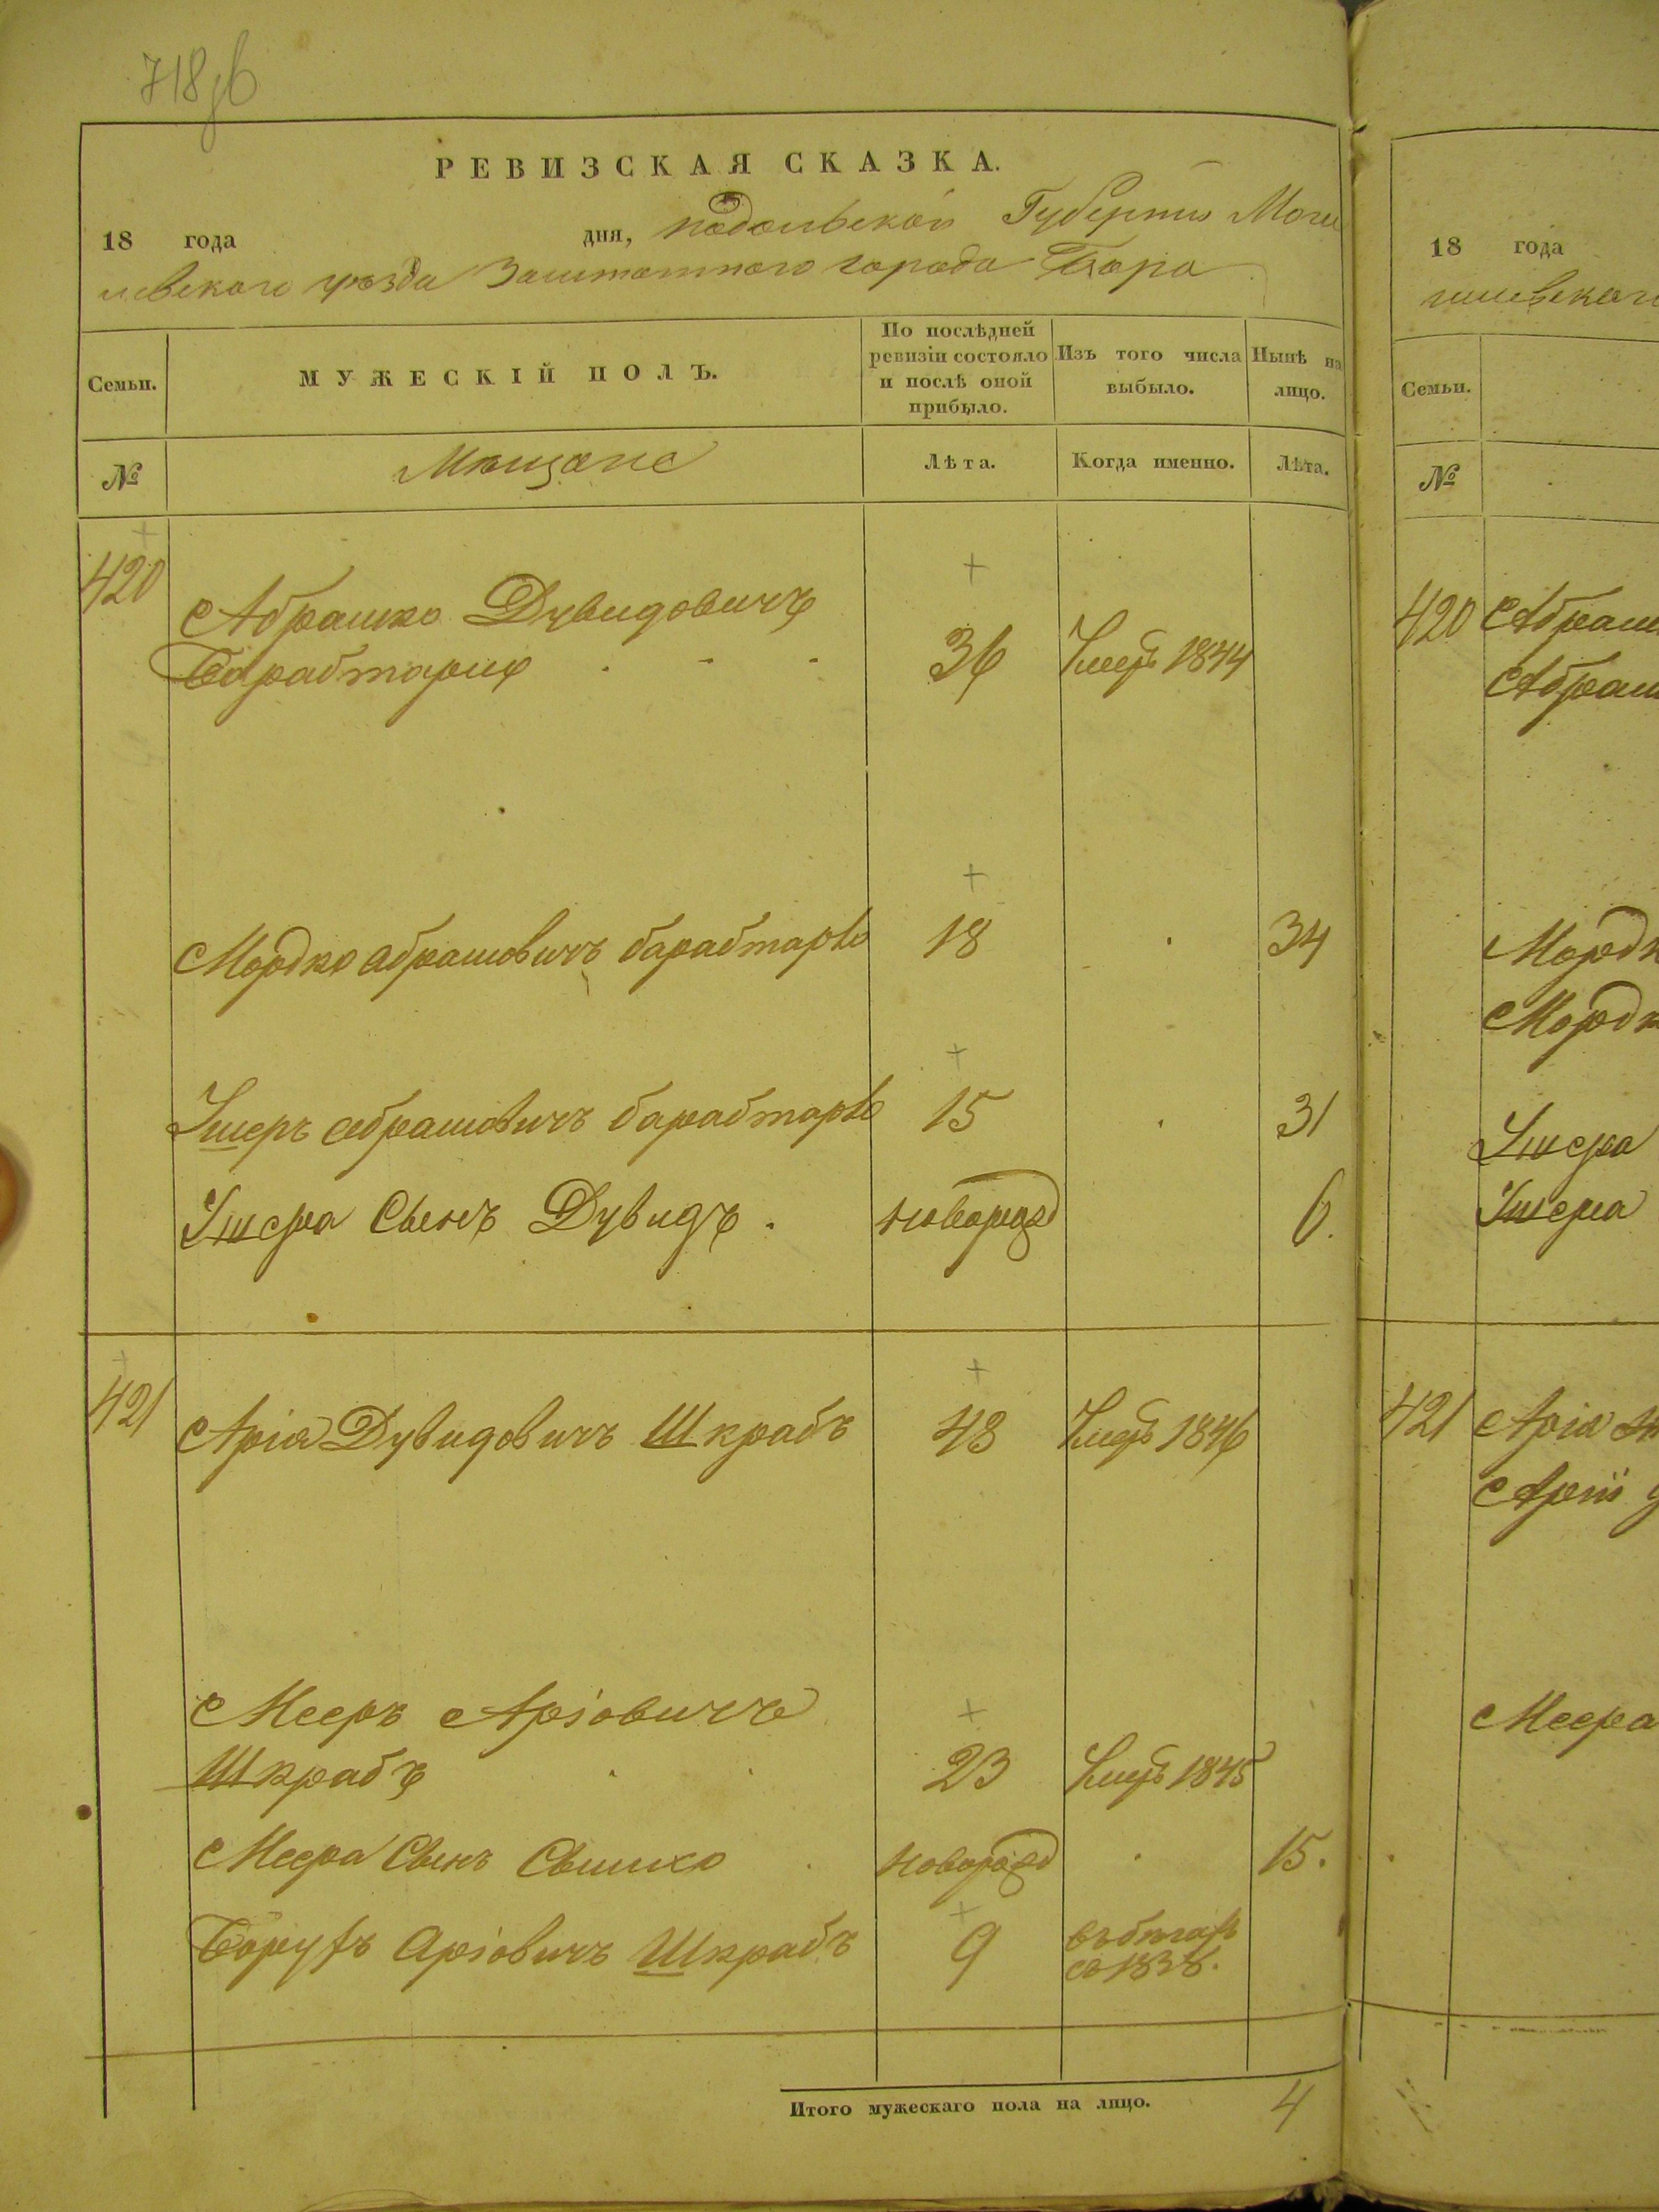 718об
РЕВИЗСКАЯ СКАЗКА.
18 года дня, подольской Губерніи Моги
левскаго уѣзда Заштатного города Бара
Семьи.
МУЖЕСКІЙ ПОЛЪ.
По послѣдней ревизіи состояло и послѣ оной прибыло.
Изъ того числа выбыло.
Нынѣ на лицо.
№
Мѣщане
Лѣта.
Когда именно.
Лѣта.
420
Абрашко Дувидовичъ
36 Умеръ 1844
Мордко абрашовичъ 18 34
Ушеръ абрашовичъ 15 31
Ушера Сынъ Дувидъ. новорожд 6.
421 Аріа Дувидовичъ Шкрабъ 43 Умеръ 1846
Мееръ Аріовичъ
Шкрабъ 23 Умеръ 1845
Меера Сынъ новорожд 15.
Борухъ Аріовичъ Шкрабъ 9 въ бѣгах
съ 1838.
Итого мужескаго пола на лицо. 4
18 года
Семьи.
№
420 Абраш
Абраш
Мордк
Мордк
Ушера
Ушера
421 Аріа
Арія
Меера